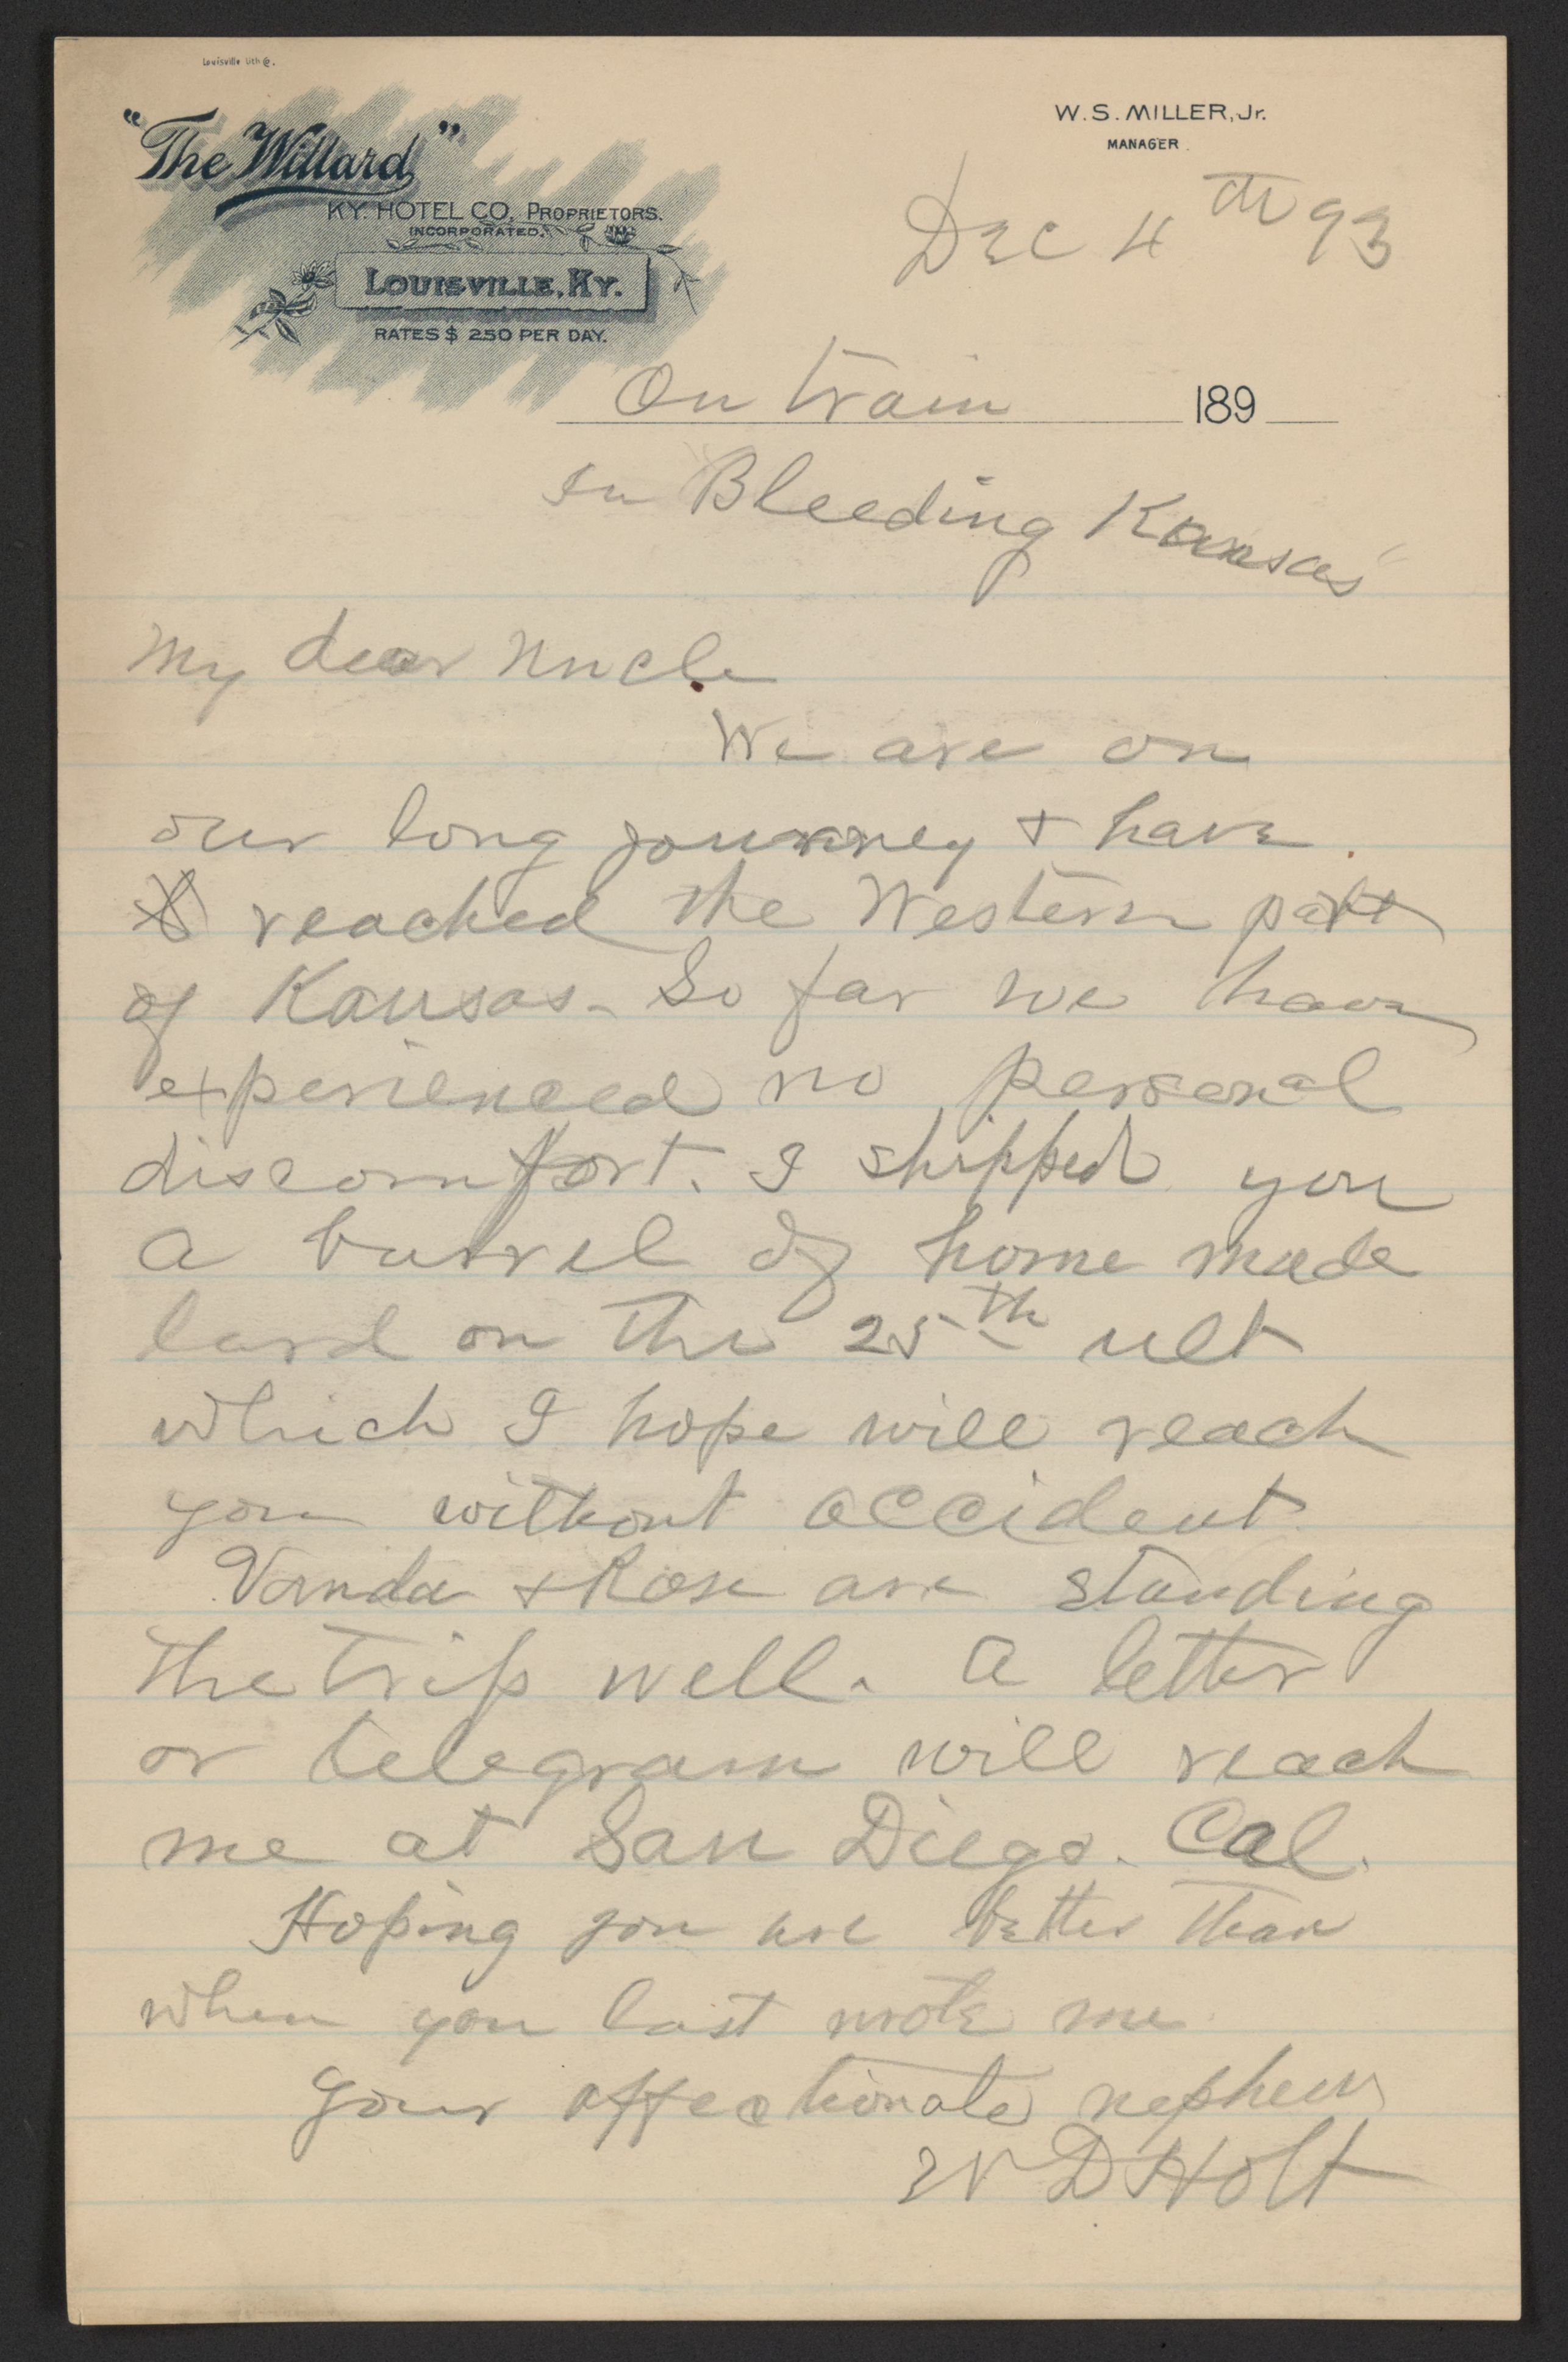 Louisville Lith Co.
"The Willard"
W. S. MILLER, Jr.
MANAGER.
KY. HOTEL CO, PROPRIETORS.
INCORPORATED.
LOUISVILLE, KY.
RATES $ 2.50 PER DAY.
Dec 4th 93
On train 189
In Bleeding Kansas
My dear Uncle
We are on
our long journey + have
reached the Western part
of Kansas - So far we have
experienced no personal
discomfort. I shipped you
a barrel of home made
lard on the 25th ult
which I hope will reach
you without accident
Vanda + Rose are standing
the trip well. A letter
or telegram will reach
me at San Diego. Cal.
Hoping you are better than
when you last wrote me
Your affectionate nephew
W D Holt